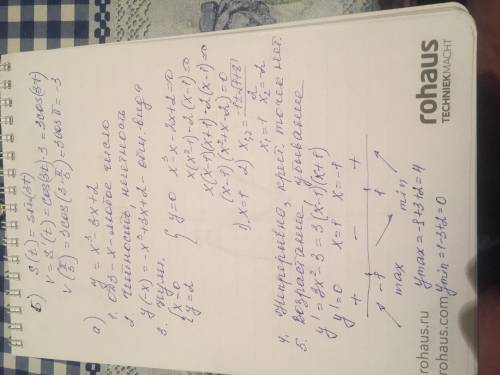 б) S(t) = sin(3t)
V = S'(t) = cos(3t)·3 = 3cos(3t)
V(π/3) = 3cos(3·π/3) = 3cosπ = -3
а) y = x³-3x+2
1. ОДЗ - x-любое число
2. четность, нечетность
y(-x) = -x³+3x+2 - общ. вида
3. нули.
{x=0
{y=2
{y=0 x³-x-2x+2=0
x(x²-1)-2(x-1)=0
x(x-1)(x+1)-2(x-1)=0
(x-1)(x²+x-2)=0
1) x=1 2) x₁,₂ = (-1±√1+8)/2
x₁=1 x₂=-2
4. непрерывна, крит. точек нет.
5. возрастание, убывание
y' = 3x²-3 = 3(x-1)(x+1)
y'=0 x=1 x=-1
+ -1 - 1 +
max min
ymax = -1+3+2=4
ymin = 1-3+2=0
rohaus
TECHNIEKMACHT
rohaus.ru
rohaus.com